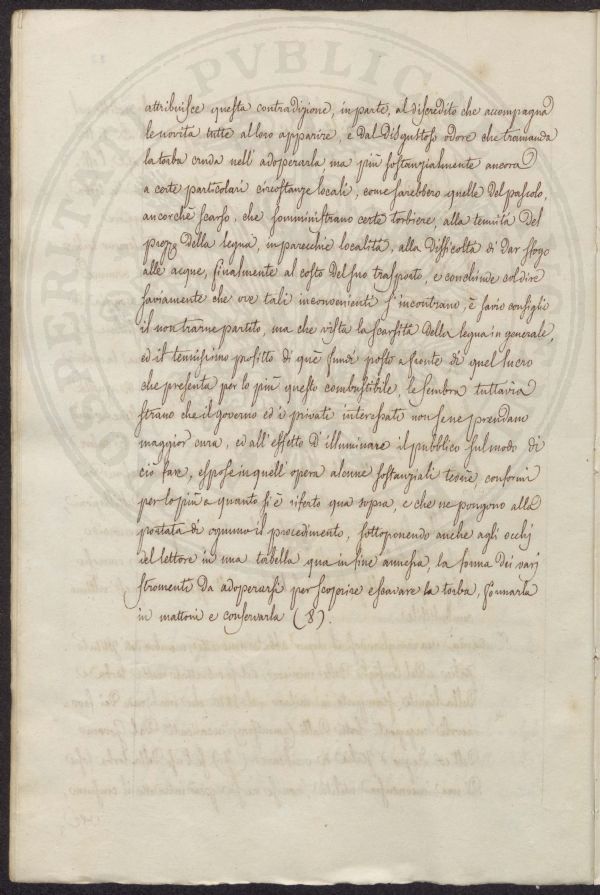 attribuisce questa contradizione, in parte, al discredito che accompagna
le novità tutte al loro apparire, e dal disgustoso odore che tramanda
la torba cruda nell'adoperarla, ma più sostanzialmente ancora
a certe particolari circostanze locali, come sarebbero quelle del pascolo,
ancorchè scarso, che somministrano certe torbiere, alla tenuità del
prezzo della legna, in parecchie località, alla difficoltà di dar sfogo
alle acque, finalmente al costo del suo trasporto, e conchiude col dire
saviamente che ove tali inconvenienti s'incontrano, è savio consiglio
il non trarne partito, ma che vista la scarsità della legna in generale,
ed il tenuissimo profitto di què fundi posto a fronte di quel lucro
che presenta per lo più questo combustibile, le sembra tuttavia
strano che il governo ed i privati interessati non se ne prendano
maggior cura, ed all'effetto d'illuminare il pubblico sul modo di
ciò fare, espose in quell'opera alcune sostanziali teorie conformi
per lo più a quanto si è riferto qua sopra, e che ne pongono alla
portata di ognuno il procedimento, sottoponendo anche agli occhj
del lettore in una torbella qua in fine annessa, la forma dei varj
stromenti da adoperarsi per scoprire e scavare la torba, formarla
in mattoni e conservarla (8).